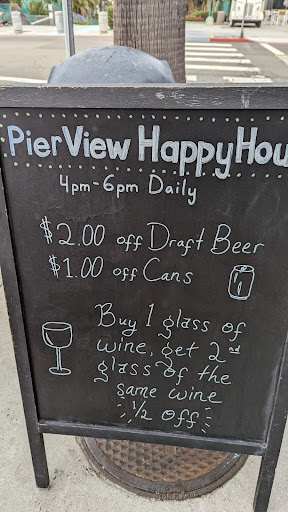 PierView HappyHou
4pm-6pm Daily
$2.00 off Draft Beer
$1.00 off Cans
Buy 1 glass of
wine, get 2nd
glass of the
same wine
1/2 off